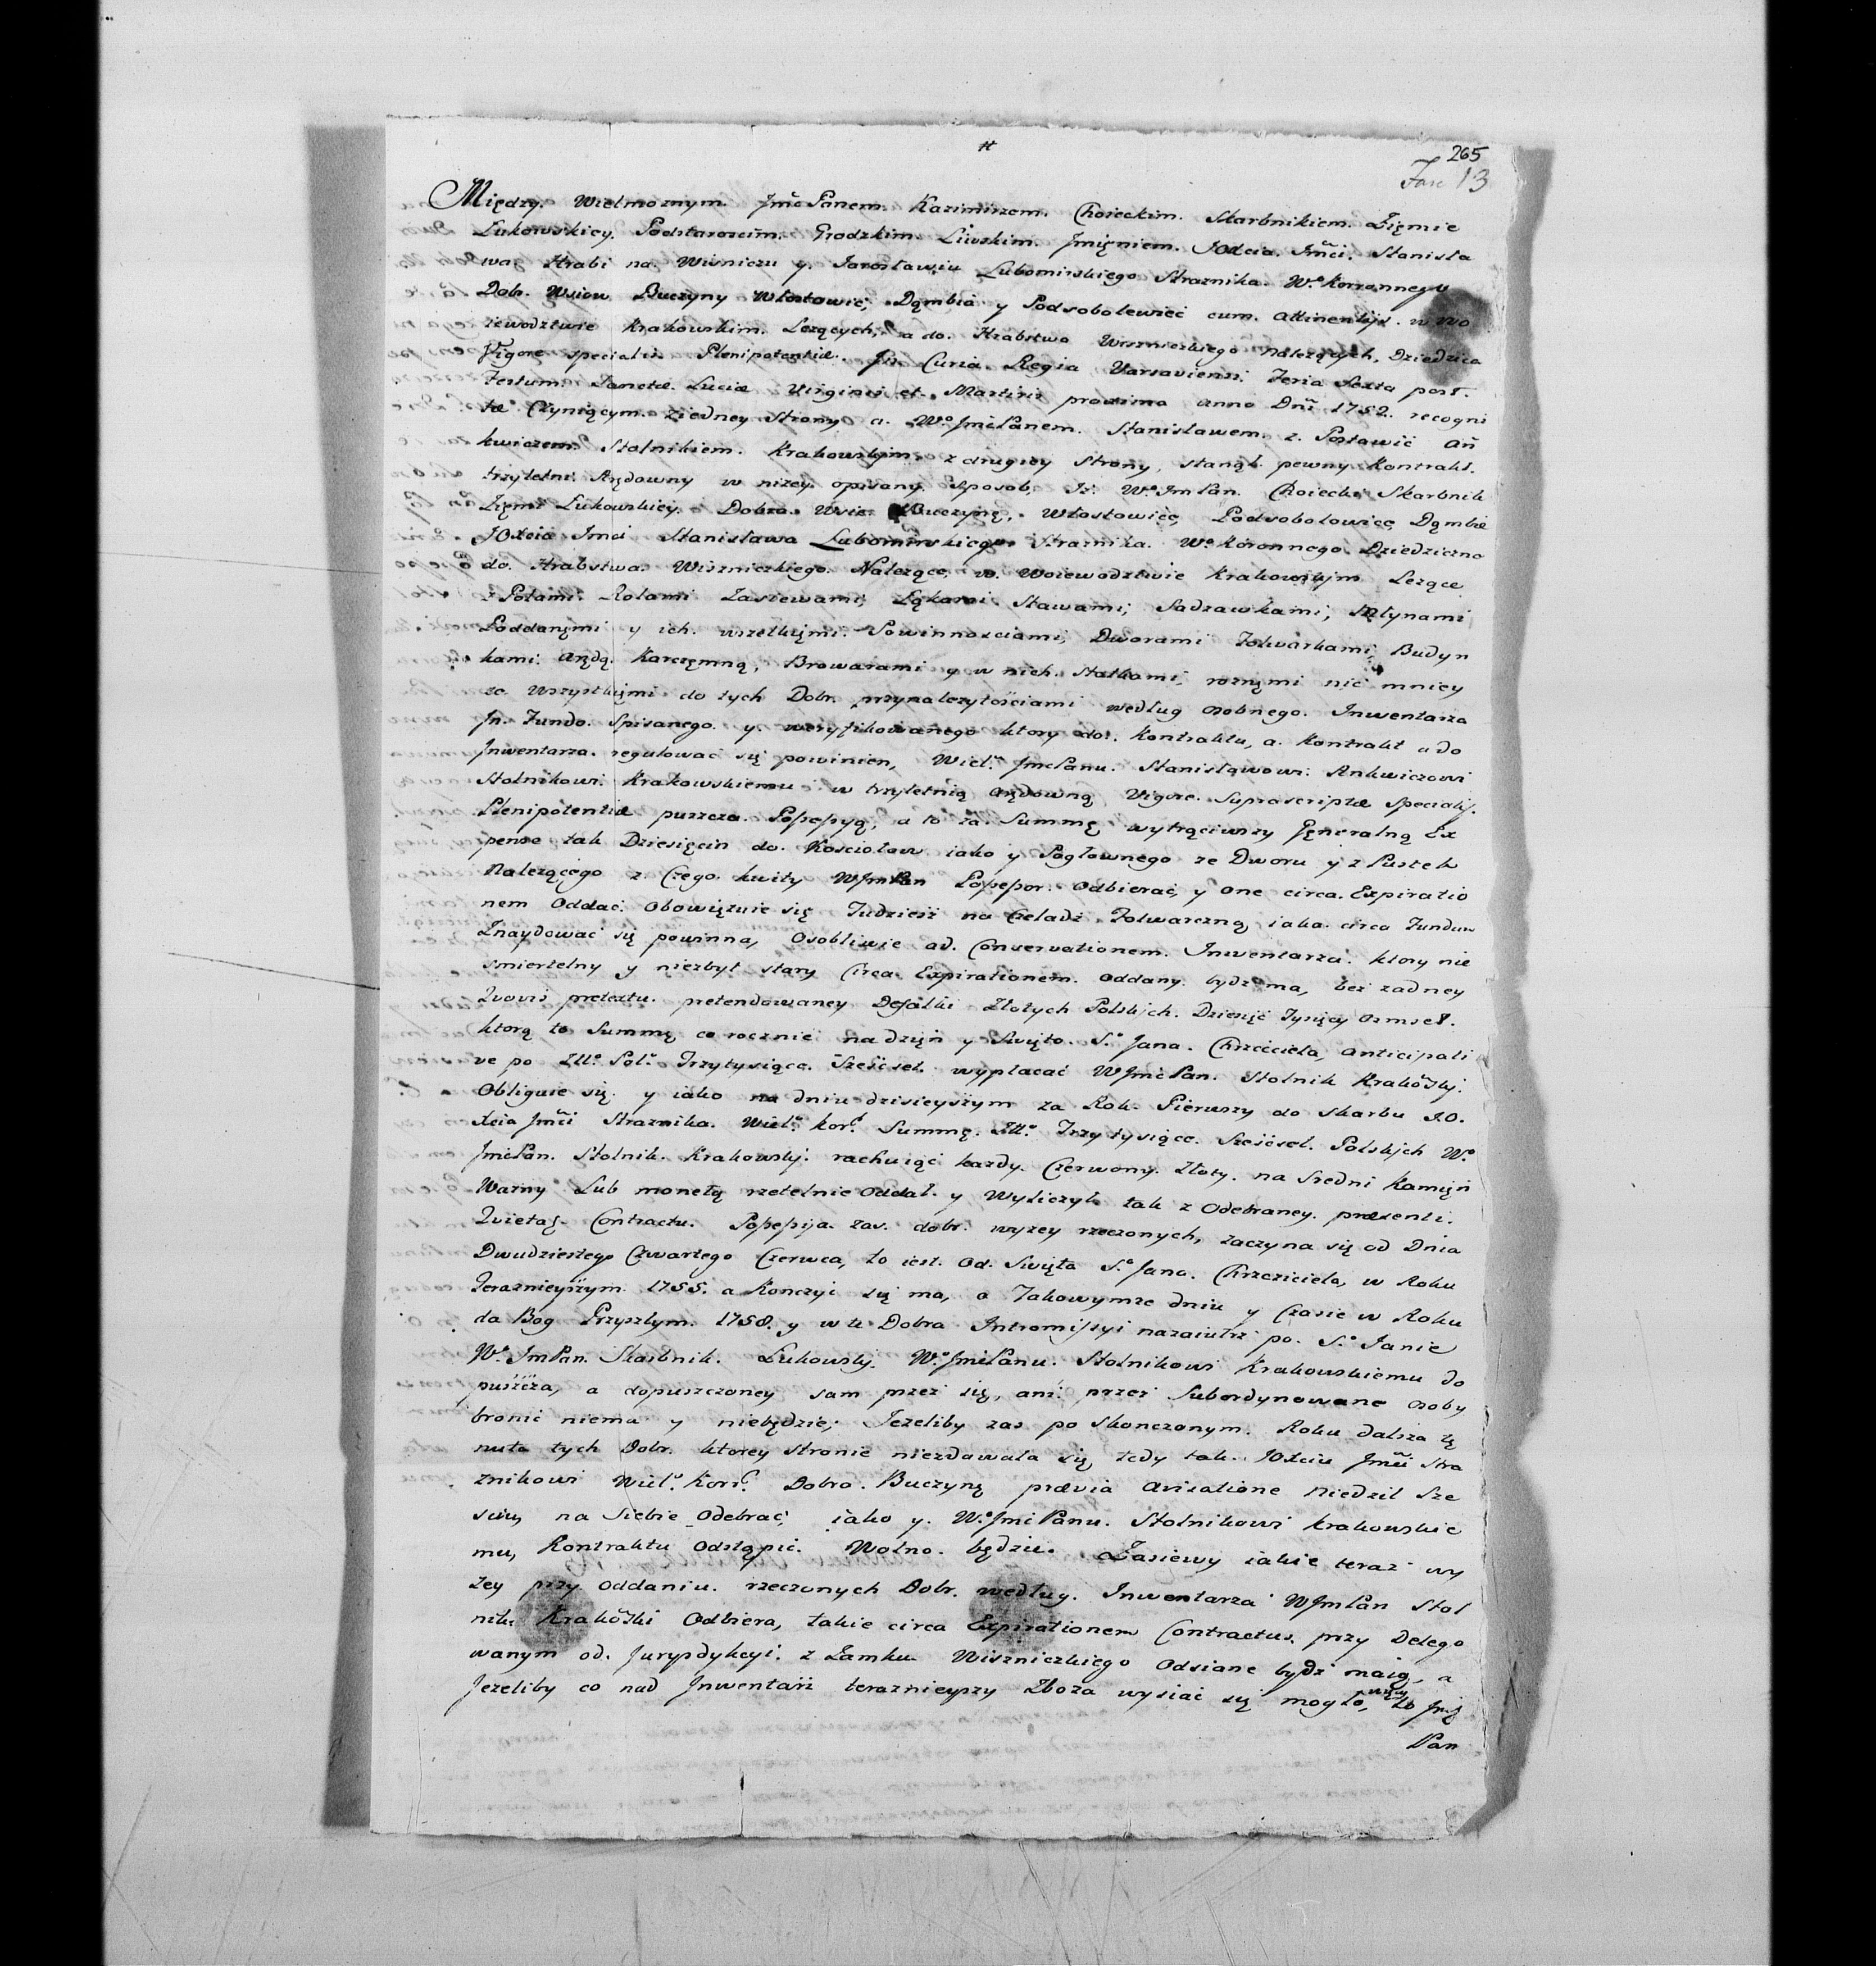 #
265
Fasc 13
Między. Wielmoznym. JmcPanem. Kazimirzem. Choieckim. Skarbnikiem. Zięmie
Lukowskiey. Podstaroscim. Grodzkim. Liwskim. Jmięniem. JOxcia. Jmci. Stanisła
wa Hrabi na. Wisniczu y. Jarosławiu Lubomirskiego Straznika. W.º Koronnego
Dobr. Wsiow Buczyny Włostowic, Dąmbia y Podsobolewiec cum. attinentijs. w Wo
iewodztwie Krakowskim. Lezących, a do. Hrabstwa Wisznickiego nalezących, Dziedzica
Vigore specialis. Plenipotentiæ. In. Curia. Regia Varsaviensi. Feria Sexta post.
Festum. Sanctæ. Luciæ Virginis et. Martiris proxima anno Dni 1752. recogni
tæ Czyniącym. z iedney Strony a. W.º JmcPanem. Stanisławem. z. Posławic An
kwiczem. Stolnikiem. Krakowskjm. z drugiey Strony, stanął. pewny Kontrakt.
trzyletni. Arędowny w nizey. opisany. Sposob, Iz. W.º JmPan. Choiecki Skarbnik
Ziemi Lukowskiey. Dobra. Wsie Buczynę, Włostowice, Podsobolowice, Dąmbie
JOxcia Jmci Stanisława Lubomirskiego. Straznika. W.º Koronnego. Dziedziczne
do. Hrabstwa. Wisznickiego. Nalezące, w. Woiewodztwie Krakowskjm Lezące
z Polami. Rolami Zasiewami, Łąkami. Stawami, Sadzawkami, Młynami
Poddanymi y ich. wszelkjmi. Powinnosciami, Dworami Folwarkami, Budyn
kami. arędą. Karczęmną, Browarami y w nich. Statkami, roznymi nic mniey
ze wszystkjmi do tych Dobr. przynalezytosciami według osobnego. Inwentarza
In. Fundo. Spisanego. y. weryfikowanego ktory do. Kontraktu, a. Kontrakt a do
Inwentarza. regulować się powinien, Wiel.º JmcPanu. Stanisławowi. Ankwiczowi
Stolnikowi. Krakowskiemu w trzyletnią Arędowną, Vigore. Suprascriptæ Specialis.
Plenipotentiæ puszcza. Possessyą, a to za. Summę wytrąciwszy Gęneralną Ex
pense tak Dziesięcin do. Kosciołow iako y Pogłownego ze Dworu y z Pustek
Nalezącego z Czego. kwity WJmPan Possessor. Odbierać, y one circa. Expiratio
nem Oddać. Obowiązuie się Tudziesz na Czeladz. Folwarczną, iaka. circa Fundum
Znaydować się powinna, Osobliwie ad. Conservationem. Inwentarza. ktory nie
smiertelny y niezbyt stary Circa Expirationem. oddany bydz ma, bez zadney
Quovis pretextu. pretendowaney Defalki Złotych Polskjch. Dziesięć Tysięcy osmset.
ktorą to Summę co rocznie na dzięn y Swięto. S.º Jana. Chrzciciela, anticipati
ve po Zł.º Pol.º Trzytysiące. Szescset. wypłacać WJmcPan. Stolnik Krakowskj.
Obliguie się. y iako na dniu dzisieyszym za Rok. Pierwszy do skarbu JO.
xcia Jmci Straznika. Wiel.º kor.º Summę. Zł.º Trzy tysiące. Szescset. Polskjch W.º
JmcPan. Stolnik. Krakowskj. rachuiąc kazdy. Czerwony. złoty. na Sredni Kamięn
Wazny Lub monetą rzetelnie oddał. y Wyliczył. tak z odebraney. præsenti.
Quietat. Contractu. Possessya. zas. dobr. wyzey rzeczonych, zaczyna się od Dnia
Dwudziestego Czwartego Czerwca, to iest. od. Swięta S.º Jana. Chrzciciela, w Roku
Teraznieyszym. 1755. a Konczyć się ma, o Takowymze dniu y Czasie w Roku
da Bog Przyszłym. 1758. y w te Dobra Intromissyi nazaiutrz po. S.º Janie
W.º JmPan. Skarbnik. Lukowskj. W.º JmcPanu. Stolnikowi Krakowskiemu do
puszcza, a dopuszczoney sam przez się, ani. przez Subordynowane osoby
bronić niema y niebędzie, Jezeliby zas po skonczonym. Roku dalsza tę
nuta tych Dobr. ktorey stronie niezdawała się, tedy tak. JOxciu Jmci Stra
znikowi Wiel.º Kor.º Dobra. Buczynę prævia avisatione Niedziel Sze
sciu, na Siebie Odebrać, iako y. W.º JmcPanu. Stolnikowi krakowskie
mu, Kontraktu odstąpić. Wolno. będzie. Zasiewy iakie teraz wy
zey przy oddaniu. rzeczonych Dobr. według. Inwentarza WJmPan Stol
nik. Krakowski Odbiera, takie circa Expirationem Contractus. przy Delego
wanym od. Jurysdykcyi. z Zamku Wisznickiego Odsiane bydz maią, a
Jezeliby co nad Inwentarz teraznieyszy Zboza wysiać się mogło, więcey to Jmć
Pan